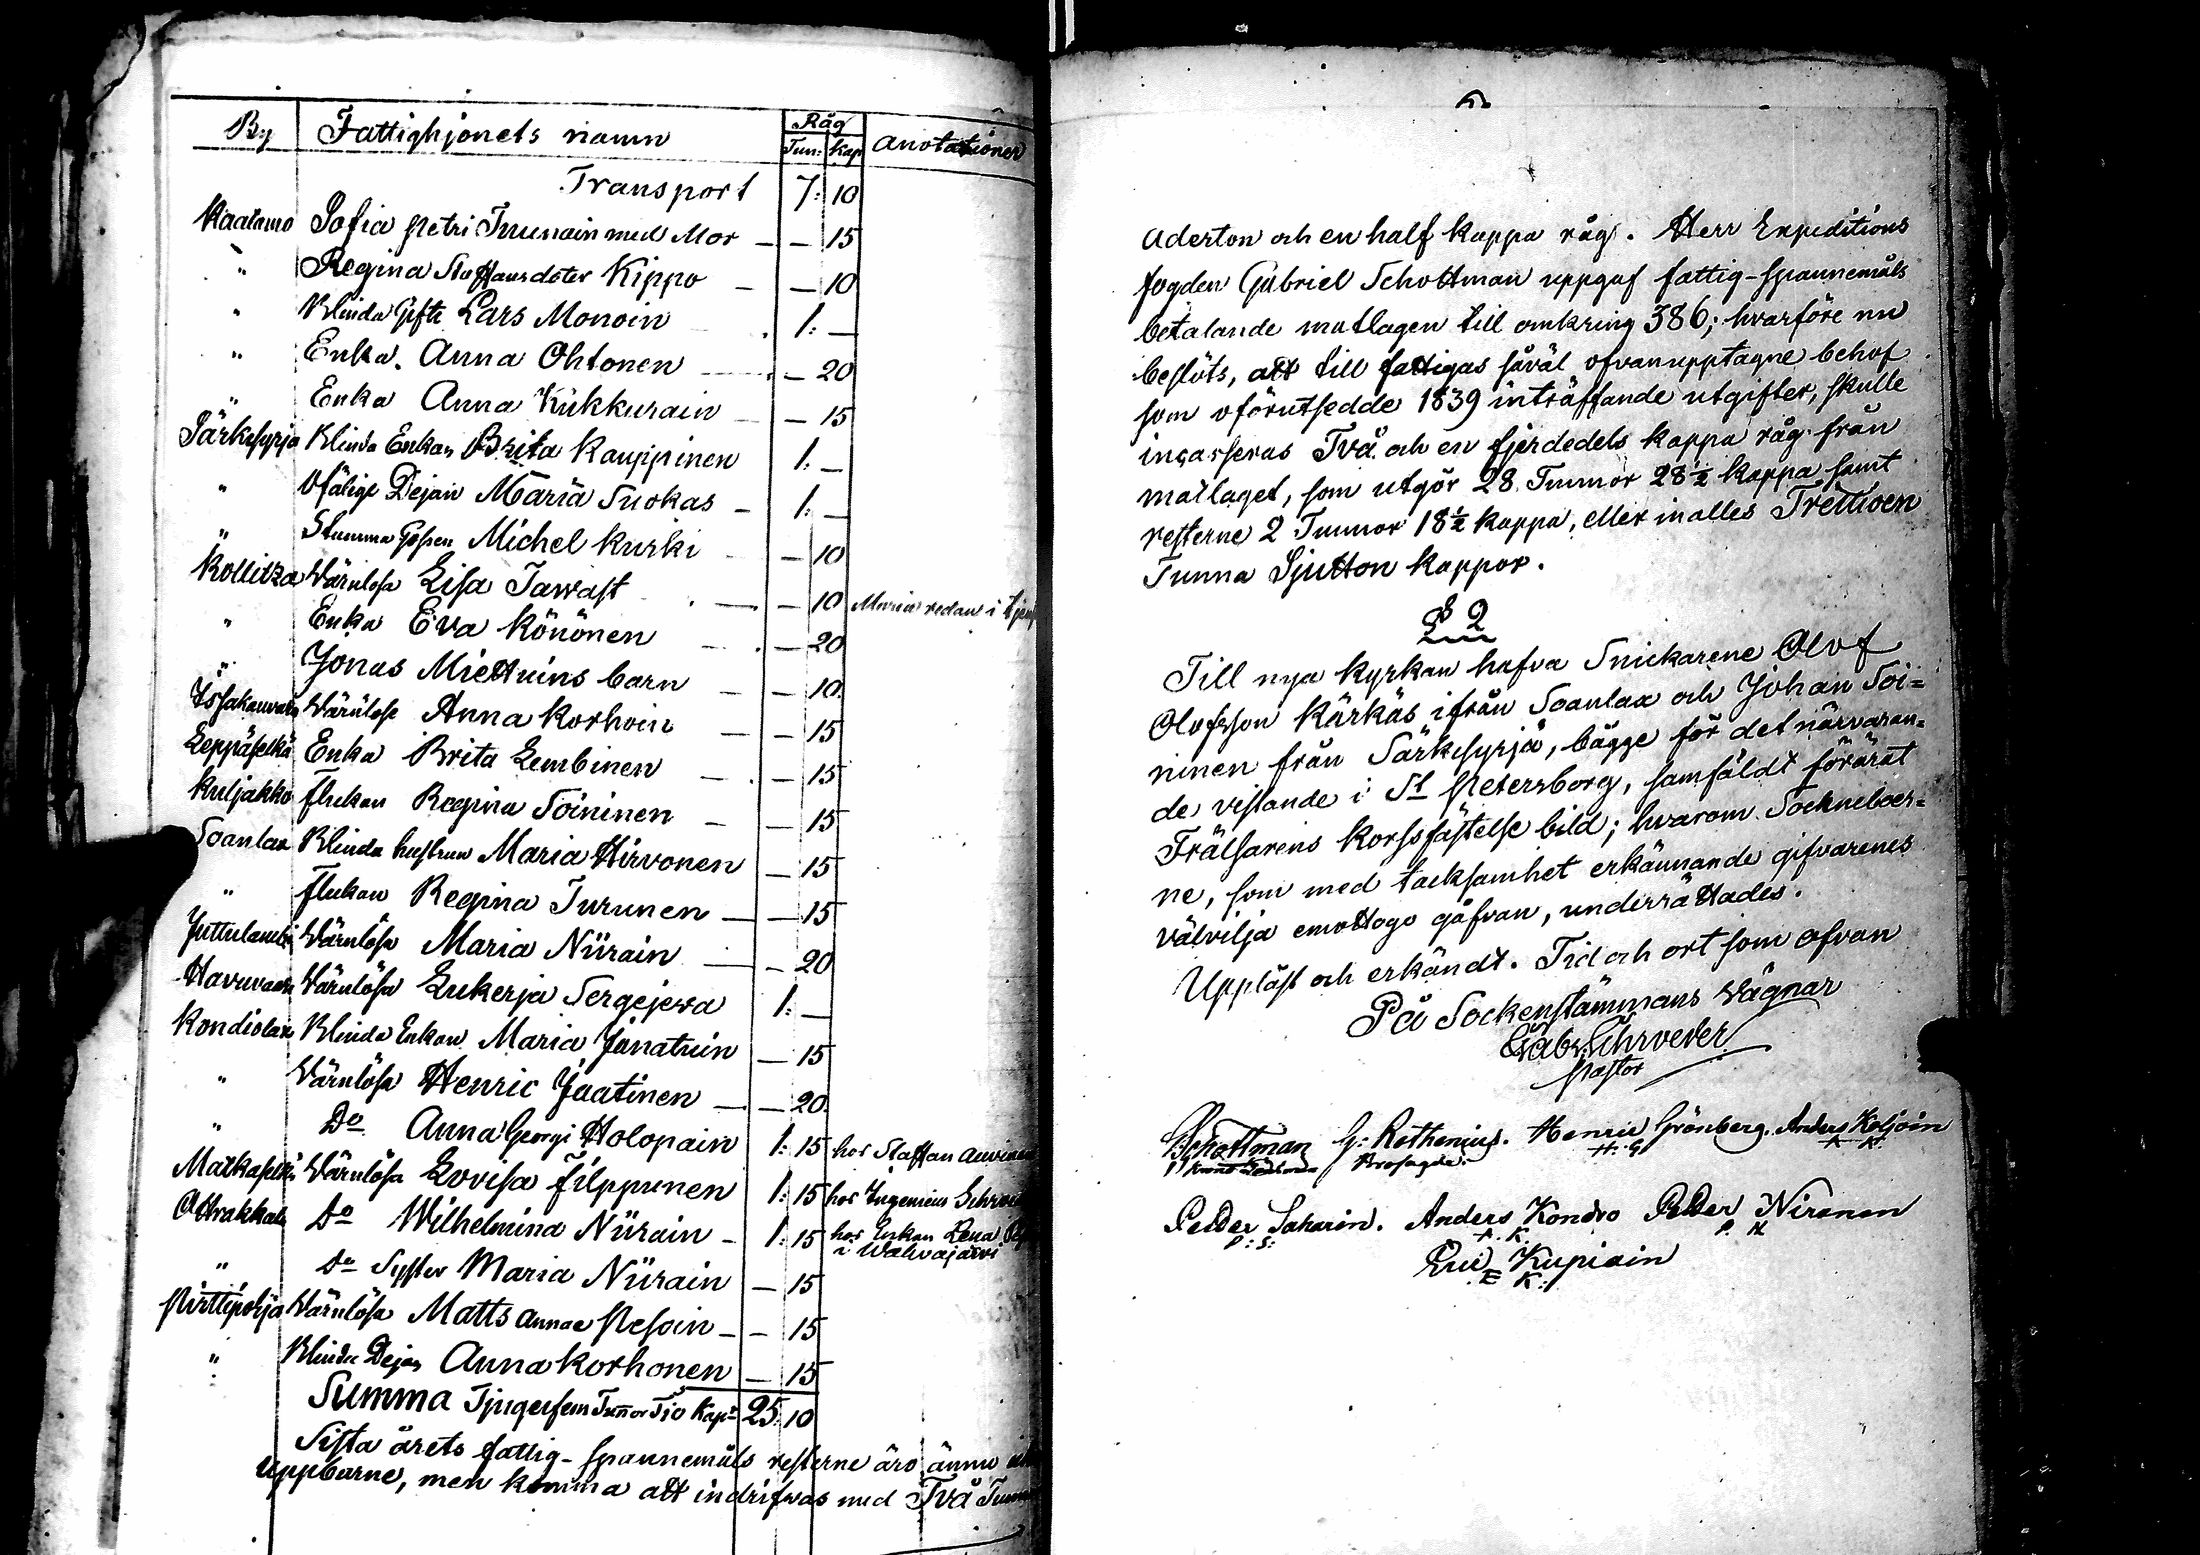 By Fattighjonets namn Råg Anotationer
Tun: Kap
Transport 7: 10
Kaalamo Sofia Petri Immonin med Mor — — 15
" Regina Staffansdoter Kippo — — 10
" Blinda Gifte Lars Monoin 1: —
" Enka. Anna Ohtonen — 20
" Enka Anna Kukkurain — — 15
Särkisyrjä Blinda Enkan Brita Kauppinen 1: —
" Ofälige Dejan Maria Suokas — 1: —
" Stumma Gossen Michel Kurki — 10
Kollitza Wärnlösa Lisa Tawast — — 10 Maria redan i
" Enka Eva Könönen — 20
" Jonas Miettuins barn — — 10
Wärnlöse Anna Korhoin — — 15
Leppäselkä Enka Brita Lembinen — — 15
Kuljakko flickan Regina Soininen — — 15
Soanlax Blinda hustrun Maria Hirvonen — 15
" flickan Regina Turunen — — 15
Wärnlösa Maria Niirain — — 20
Havuvaara Wärnlösa Lukerja Sergejewa 1: —
Kondiolax Blinda Enkan Maria Janatuin — 15
" Wärnlösa Henric Jaatinen — — 20
" Do Anna Georgi Holopain 1: 15 hos Staffan
Matkaselkä Wärnlösa Lovisa Filppunen 1: 15 hos
Ottrakkala Do Wilhelmina Niirain — 1: 15 hos Enkan Lena
i Walvajärvi
" Do Syster Maria Niirain — 15
Pirttipohja Wärnlösa Matts Annae Pesoin — — 15
" Blinda Dejan Anna Korhonen — 15
Summa Tjugufem Tunnor Tio Kapr 25: 10
Sista årets fattig-spannemåls resterne äro ännu
uppburne, men komma att indrifvas med Två
aderton och en half kappa råg. Herr Expeditions
fogden Gabriel Schottman uppgaf fattig-spannemåls
betalande matlagen till omkring 386; hvarföre nu
beslöts, att till fattigas såväl ofvanupptagne behof
som oförutsedde 1839 inträffande utgifter, skulle
incasseras Två och en fjerdedels kappa råg från
matlaget, som utgör 28 Tunnor 28½ kappa samt
resterne 2 Tunnor 18½ kappa, eller inalles Trettioen
Tunna Sjutton kappor.
§ 2
Till nya kyrkan hafva Snickarene Olof
Olofsson Kärkäs ifrån Soanlax och Johan Soi=
ninen från Särkisyrjä, bägge för det närvaran=
de vistande i St Petersborg, samfäldt förärat
Frälsarens korssfästelse bild; hvarom Sockneboer=
ne, som med tacksamhet erkännande gifvarenes
välvilja emottogo gåfvan, underrättades.
Uppläst och erkändt. Tid och ort som ofvan
På Sockenstämmans Vägnar
Gabr. Schroeder
Pastor
GSchottman G: Rothenius. Henric Grönberg. Anders Koljoin
H: G A K
Petter Saharin. Anders Kondro Petter Nironen
P: S: A. K. P. N
Eric Kupiain
E K: